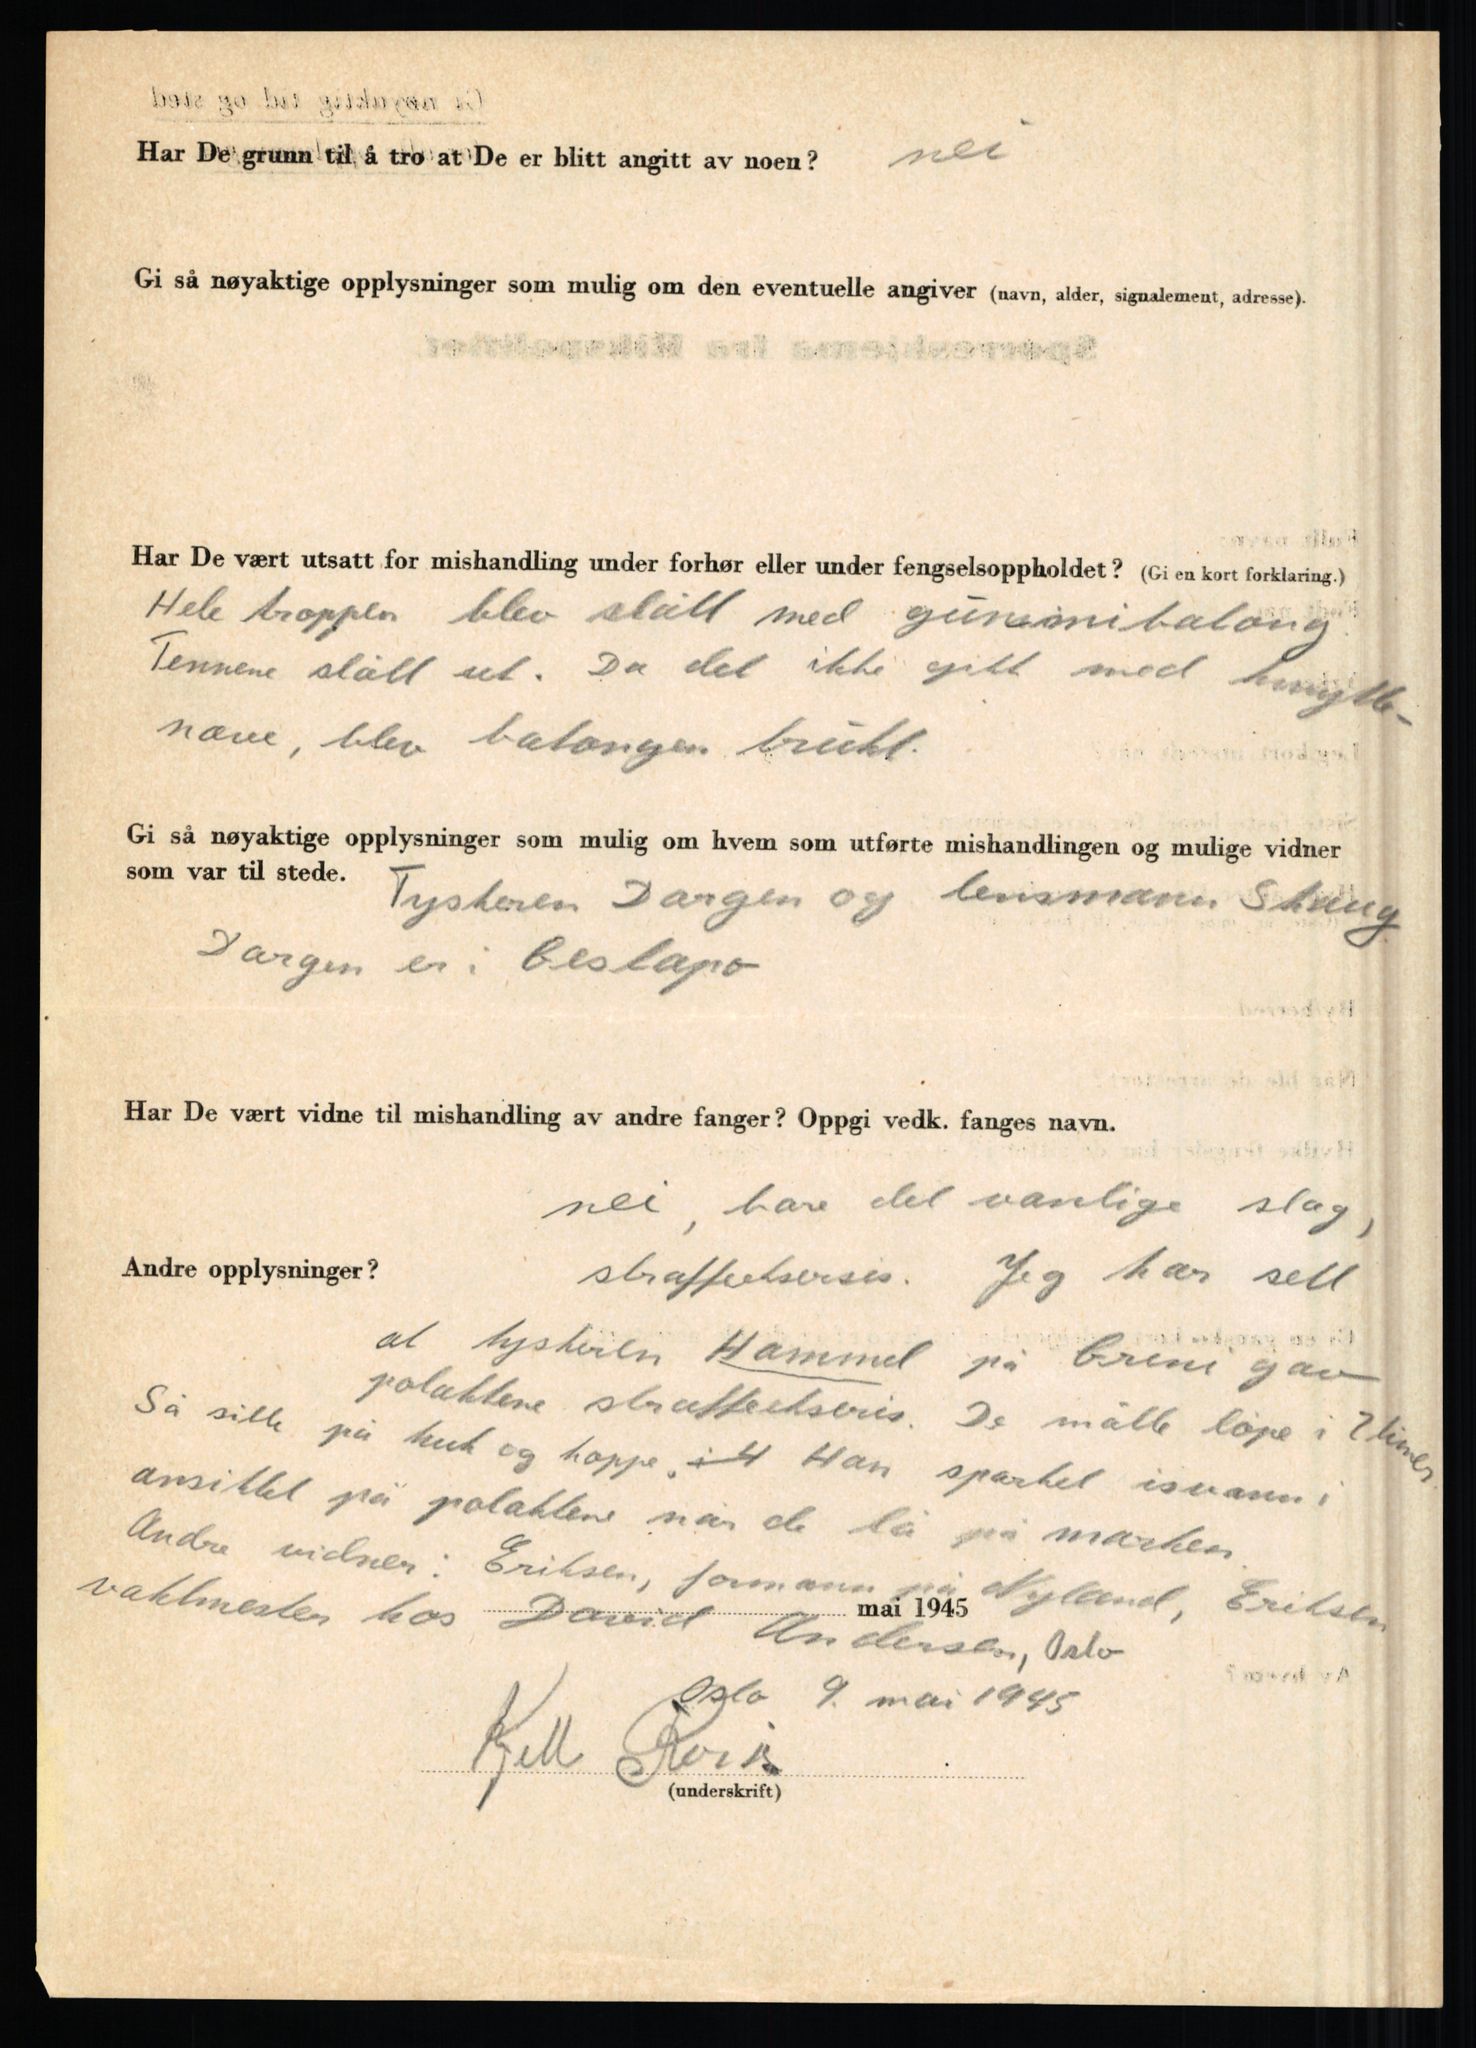 Har De grunn til å tro at De er blitt angitt av noen? nei
Gi så nøyaktige opplysninger som mulig om den eventuelle angiver (navn, alder, signalement, adresse).
Har De vært utsatt for mishandling under forhør eller under fengselsoppholdet? (Gi en kort forklaring.)
Hele troppen blev slått med gummibatong
Tennene slått ut. Da det ikke gikk med knytte-
neve, blev batongen brukt.
Gi så nøyaktige opplysninger som mulig om hvem som utførte mishandlingen og mulige vidner
som var til stede. Tyskeren Dargen og lensmann Skaug
Dargen er i Gestapo
Har De vært vidne til mishandling av andre fanger? Oppgi vedk. fanges navn.
nei, bare det vanlige slag,
Andre opplysninger? straffeekserses. Jeg har sett
at tyskeren Hammel på Greni gav
polakkene straffeekseris. De måtte løpe i 2 timer
Så sitte på huk og hoppe. Han sparket isvann i
ansiktet på polakkene når de lå på marken.
Andre vidner: Eriksen, formann på Nyland, Eriksen
vaktmester hos David Andersen, Oslo
mai 1945
Oslo 9. mai 1945
Kjell
(underskrift)